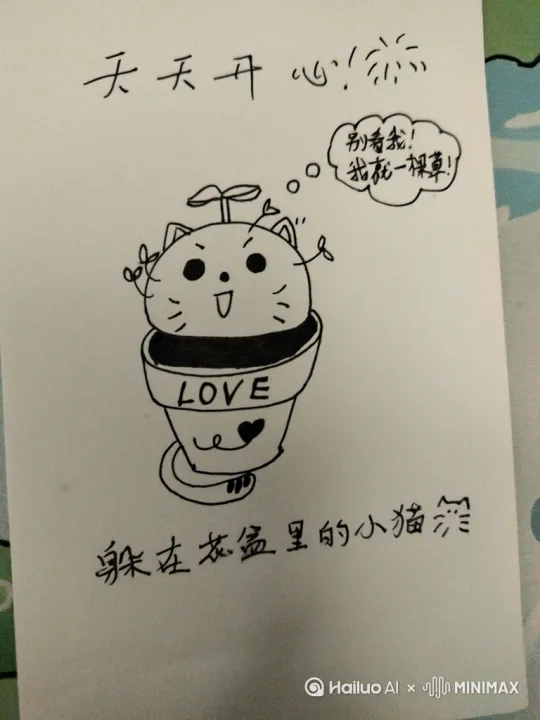 天天开心!
别看我!
我就一棵草!
LOVE
躲在花盆里的小猫
Hailuo AI × MINIMAX